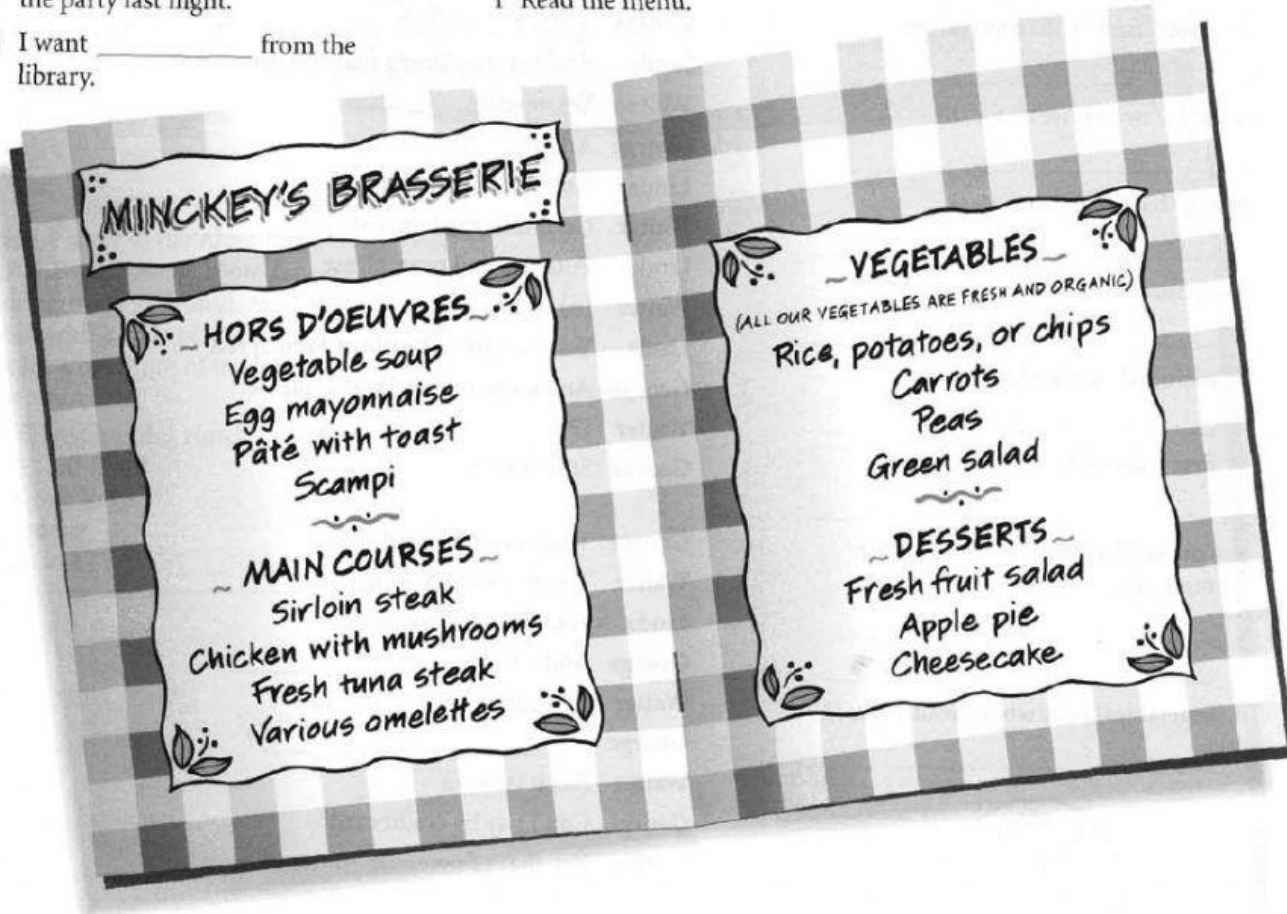 the party last night.
I want ____________ from the
library.
1 Read the menu.
MINCKEY'S BRASSERIE
HORS D'OEUVRES
Vegetable soup
Egg mayonnaise
Pâté with toast
Scampi
MAIN COURSES
Sirloin steak
Chicken with mushrooms
Fresh tuna steak
Various omelettes
VEGETABLES
(ALL OUR VEGETABLES ARE FRESH AND ORGANIC)
Rice, potatoes, or chips
Carrots
Peas
Green salad
DESSERTS
Fresh fruit salad
Apple pie
Cheesecake